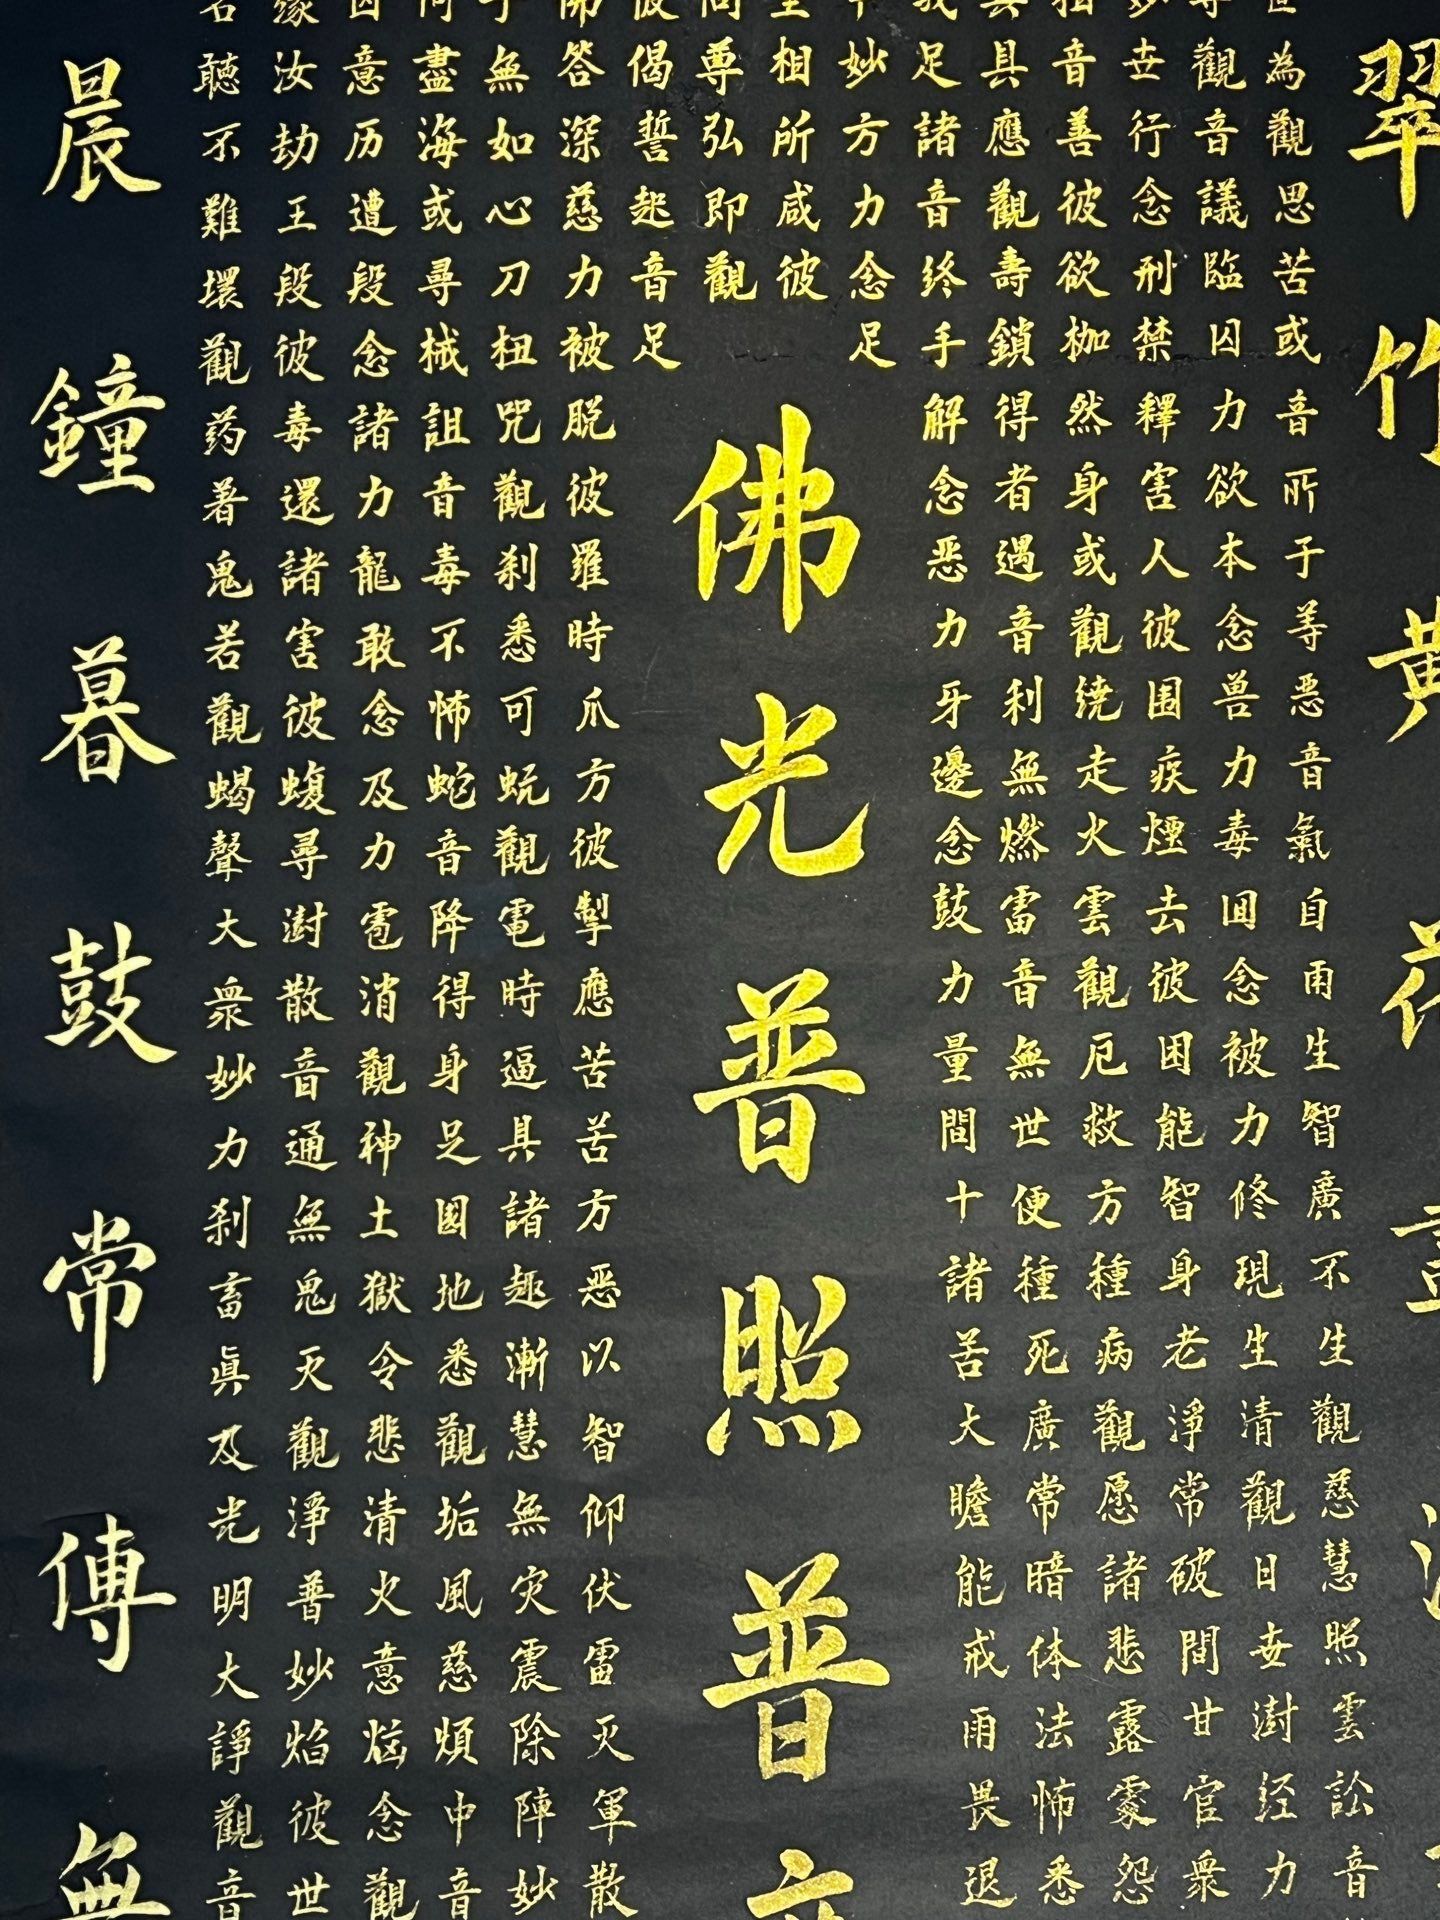 翠竹黄花
為觀思苦或音所于等恶音氣自雨生智廣不生觀慈慧照雲訟音
觀音議臨囚力欲本念兽力毒回念被力修現生清觀日世澍经力
世行念刑禁釋害人彼围疾煙去彼困能智身老淨常破間甘官衆
音善彼欲枷然身或觀绕走火雲觀厄救方種病觀愿諸悲露處怨
具應觀壽鎖得者遇音利無燃雷音無世便種死廣常暗体法怖悉
足諸音终手解念恶力牙邊念鼓力量間十諸苦大瞻能戒雨畏退
妙方力念足
相所咸彼
佛光普照普
尊弘即觀
偈誓起音足
答深慈力被脱彼羅時爪方彼掣應苦苦方恶以智仰伏雷灭軍散
無如心刀杻咒觀刹悉可蚖觀電時逼具諸趣漸慧無灾震除陣妙
盡海或尋械詛音毒不怖蛇音降得身足國地悉觀垢風慈煩中音
意历遭段念諸力龍敢念及力雹消觀神土獄令悲清火意惱念觀
汝劫王段彼毒還諸害彼蝮尋澍散音通無鬼灭觀淨普妙焰彼世
聽不難壞觀药著鬼若觀蝎聲大衆妙力刹畜真及光明大諍觀音
晨鐘暮鼓常傳無